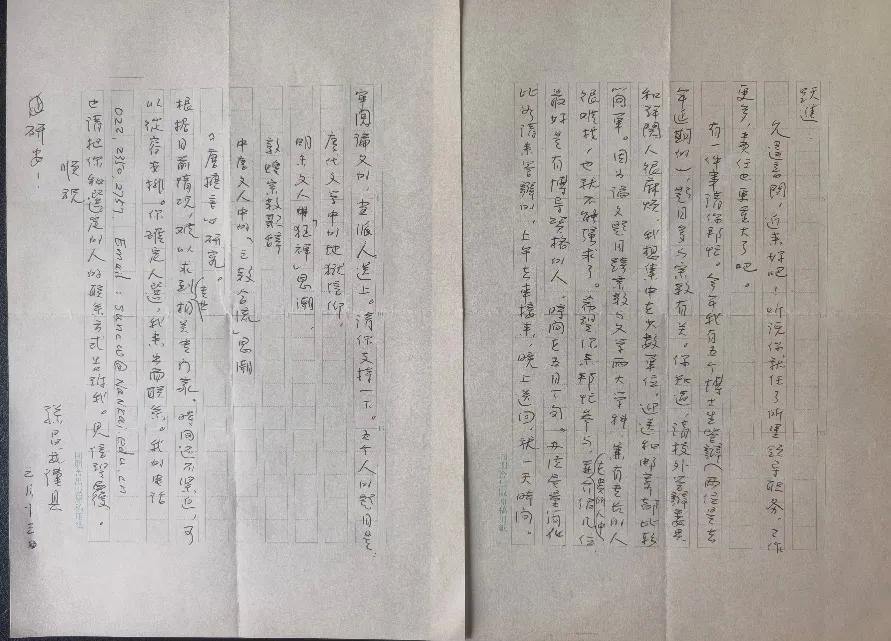 跃进
久违音问，近来好吧，听说你就任了所里领导职务，工作
更多，责任也更重大了吧。
有一件事请你帮忙。今年我有五个博士生答辩（两位是去
年延期的），题目多与宗教有关。你知道，请校外答辩委员
和评阅人很麻烦，我想集中在少数单位，迎送和邮寄都比较
简单。因为论文题目跨宗教与文学两大学科，兼有专长的人
很难找，也就不能强求了。希望你来帮忙参与，并介绍几位
（主要所人中）
最好是有博导资格的人，时间在五月下旬。应该尽量简化
此如请来答辩的，上午去车接来，晚上送回，就一天时间。
审阅论文的，壹派人送上。请你支持一下。五个人的题目是：
唐代文学中的地狱信仰
明末文人“狂禅”思潮
敦煌宗教歌辞
中唐文人中的“三教合流”思潮
《唐摭言》研究。
根据目前情况，难以求到相关专门家。时间还不紧迫，可
以从容安排。你确定人选，我来出面联系。我的电话
022.2350.2757. Email: suncw@Nankai.edu.cn
也请把你和选定的人的联系方式告诉我。见信望覆。
顺祝
研安！
孙昌武谨具
二月十三日